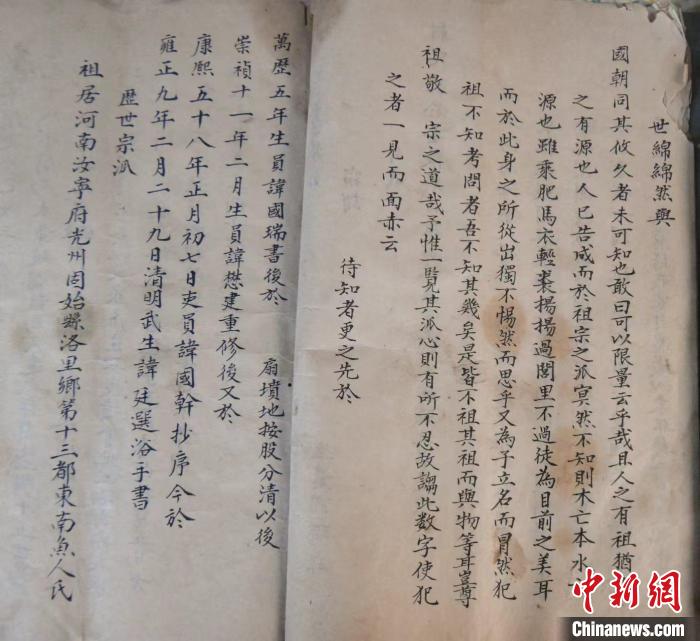 世綿綿然與
國朝同其攸久者未可知也敢曰可以限量云乎哉且人之有祖猶
之有源也人已告咸而於祖宗之派冥然不知則木亡本水
源也雖乘肥馬衣輕裘揚揚過閭里不過徒為目前之美耳
而於此身之所從出獨不惕然而思乎又為子立名而冒然犯
祖不知考問者吾不知其幾矣是皆不祖其祖而與物等耳豈尊
祖敬 宗之道哉予惟一覽其派心則有所不忍故謅此数字使犯
之者一見而面赤云
待知者更之先於
萬歷五年生員諱國瑞書後於 扇墳地按股分清以後
崇禎十一年二月生員諱懋建重修後又於
康熙五十八年正月初七日吏員諱國幹抄序今於
雍正九年二月二十九日清明武生諱廷選浴手書
歷世宗派
祖居河南汝寧府光州固始縣洛里鄉第十三都東南魚人氏
中新网
Chinanews.com